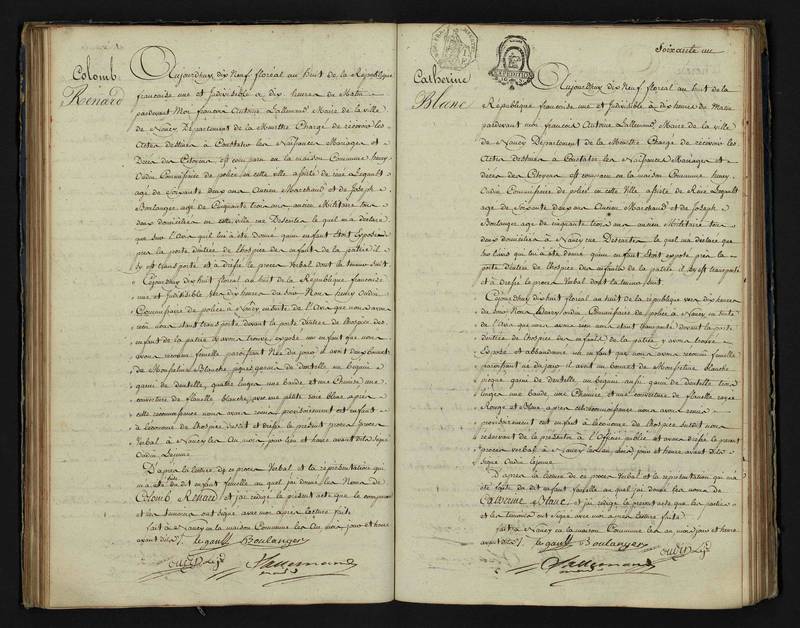 Colomb
Renard
Aujourdhuy dix Neuf floréal an huit de la République
francaise une et Indivisible a dix heures du Matin
pardevant Moi francois Antoine Lallemand Maire de la ville
de Nancy Département de la Meurthe Chargé de récevoir les
Actes destinés à Constater les Naissances Mariages et
Décès des Citoyens est comparu en la maison Commune henry
Oudin Commissaire de police en cette ville assisté de René Legault
agé de soixante deux ans Ancien Marchand et de Joseph
Boulanger agé de Cinquante trois ans ancien Militaire tous
deux domiciliés en cette ville rue Desertes le quel m'a declaré
que sur l'Avis quil lui à été Donné quun enfant Etoit Exposé
près la porte dentrée de l'hospice des enfants de la patrie il
sy est transporté et à dressé le procès Verbal dont la teneur suit
Cejourdhuy dix huit floréal an huit de la République francaise
une et Indivisible vers dix heures du soir Nous henry Oudin
Commissaire de police à Nancy ensuite de l'Avis que nous avons
recu nous etant transporté devant la porte dentrée de lhospice des
enfants de la patrie Nous y avons trouvé exposé un enfant que nous
avons reconnu femelle paroissant Née du jour il avoit un bonnet
de Mousseline Blanche piquée garnie de dentelle un béguin
garni de dentelle, quatre linges une bande et une Chemise une
couverture de flanelle blanche, avec une petite soie bleue après
cette reconnoissance nous avons remis provisoirement cet enfant
à leconome de lhospice susdit et dressé le present procès
Verbal à Nancy les An mois, jour lieu et heures avant dits Signé
Oudin Lejeune
D'après la lecture de ce procès Verbal et la représentation qui
m'a été faite du dit enfant femelle au quel j'ai donné les Noms de
Colomb Renard et j'ai redigé le présent acte que le comparant
et les temoins ont signé avec moi après lecture faite
fait à Nancy en la maison Commune les An mois jour et heure
avant dits /. le gault Boulanger
oudin Lej
Lallemand
maire
Soixante un
Catherine
Blanc
Aujourdhuy dix Neuf floréal an huit de la
République francaise une et Indivisible à dix heures du Matin
pardevant moi francois Antoine Lallemand Maire de la ville
de Nancy Département de la Meurthe Chargé de récevoir les
Actes destinés à Constater les Naissances Mariages et
décès des Citoyens est comparu en la maison Commune henry
Oudin Commissaire de police en cette Ville assisté de René Legault
agé de soixante deux ans Ancien Marchand et de Joseph
Boulanger agé de cinquante trois ans ancien Militaire tous
deux domiciliés à Nancy rue Desertes le quel ma declaré que
sur l'avis qui lui a été donné quun enfant étoit exposé près la
porte dentrée de lhospice des enfants de la patrie il sy est transporté
et à dressé le procès Verbal dont la teneur suit.
Cejourdhuy dix huit floréal an huit de la république vers dix heures
du soir Nous henry oudin Commissaire de police à Nancy en suite
de l'avis que nous avons recu nous etant transporté devant la porte
dentrée de lhospice des enfants de la patrie y avons trouvé
Exposé et abbandonné un enfant que nous avons reconnu femelle
paroissant né du jour il avoit un bonnet de Mousseline blanche
piquée garni de dentelle un béguin aussi garni de dentelle trois
linges une bande une Chemise et une couverture de flanelle rayée
Rouge et Blanc après cette reconnoissance nous avons remis
provisoirement cet enfant à leconome de lhospice susdit nous
réservant de le présenter à l'Officier public et avons dressé le présent
procès verbal à Nancy les an, mois jour et heures avant dits
Signé Oudin Lejeune
D'après la lecture de ce procès Verbal et la représentation qui m'a
été faite du dit enfant femelle au quel j'ai donné les noms de
Catherine Blanc et j'ai redigé le présent acte que les parties
et les temoins ont Signé avec moi après lecture faite
fait à Nancy en la maison Commune les an mois jour et heure
avant dits /. le gault Boulanger
oudin Lej
Lallemand
maire